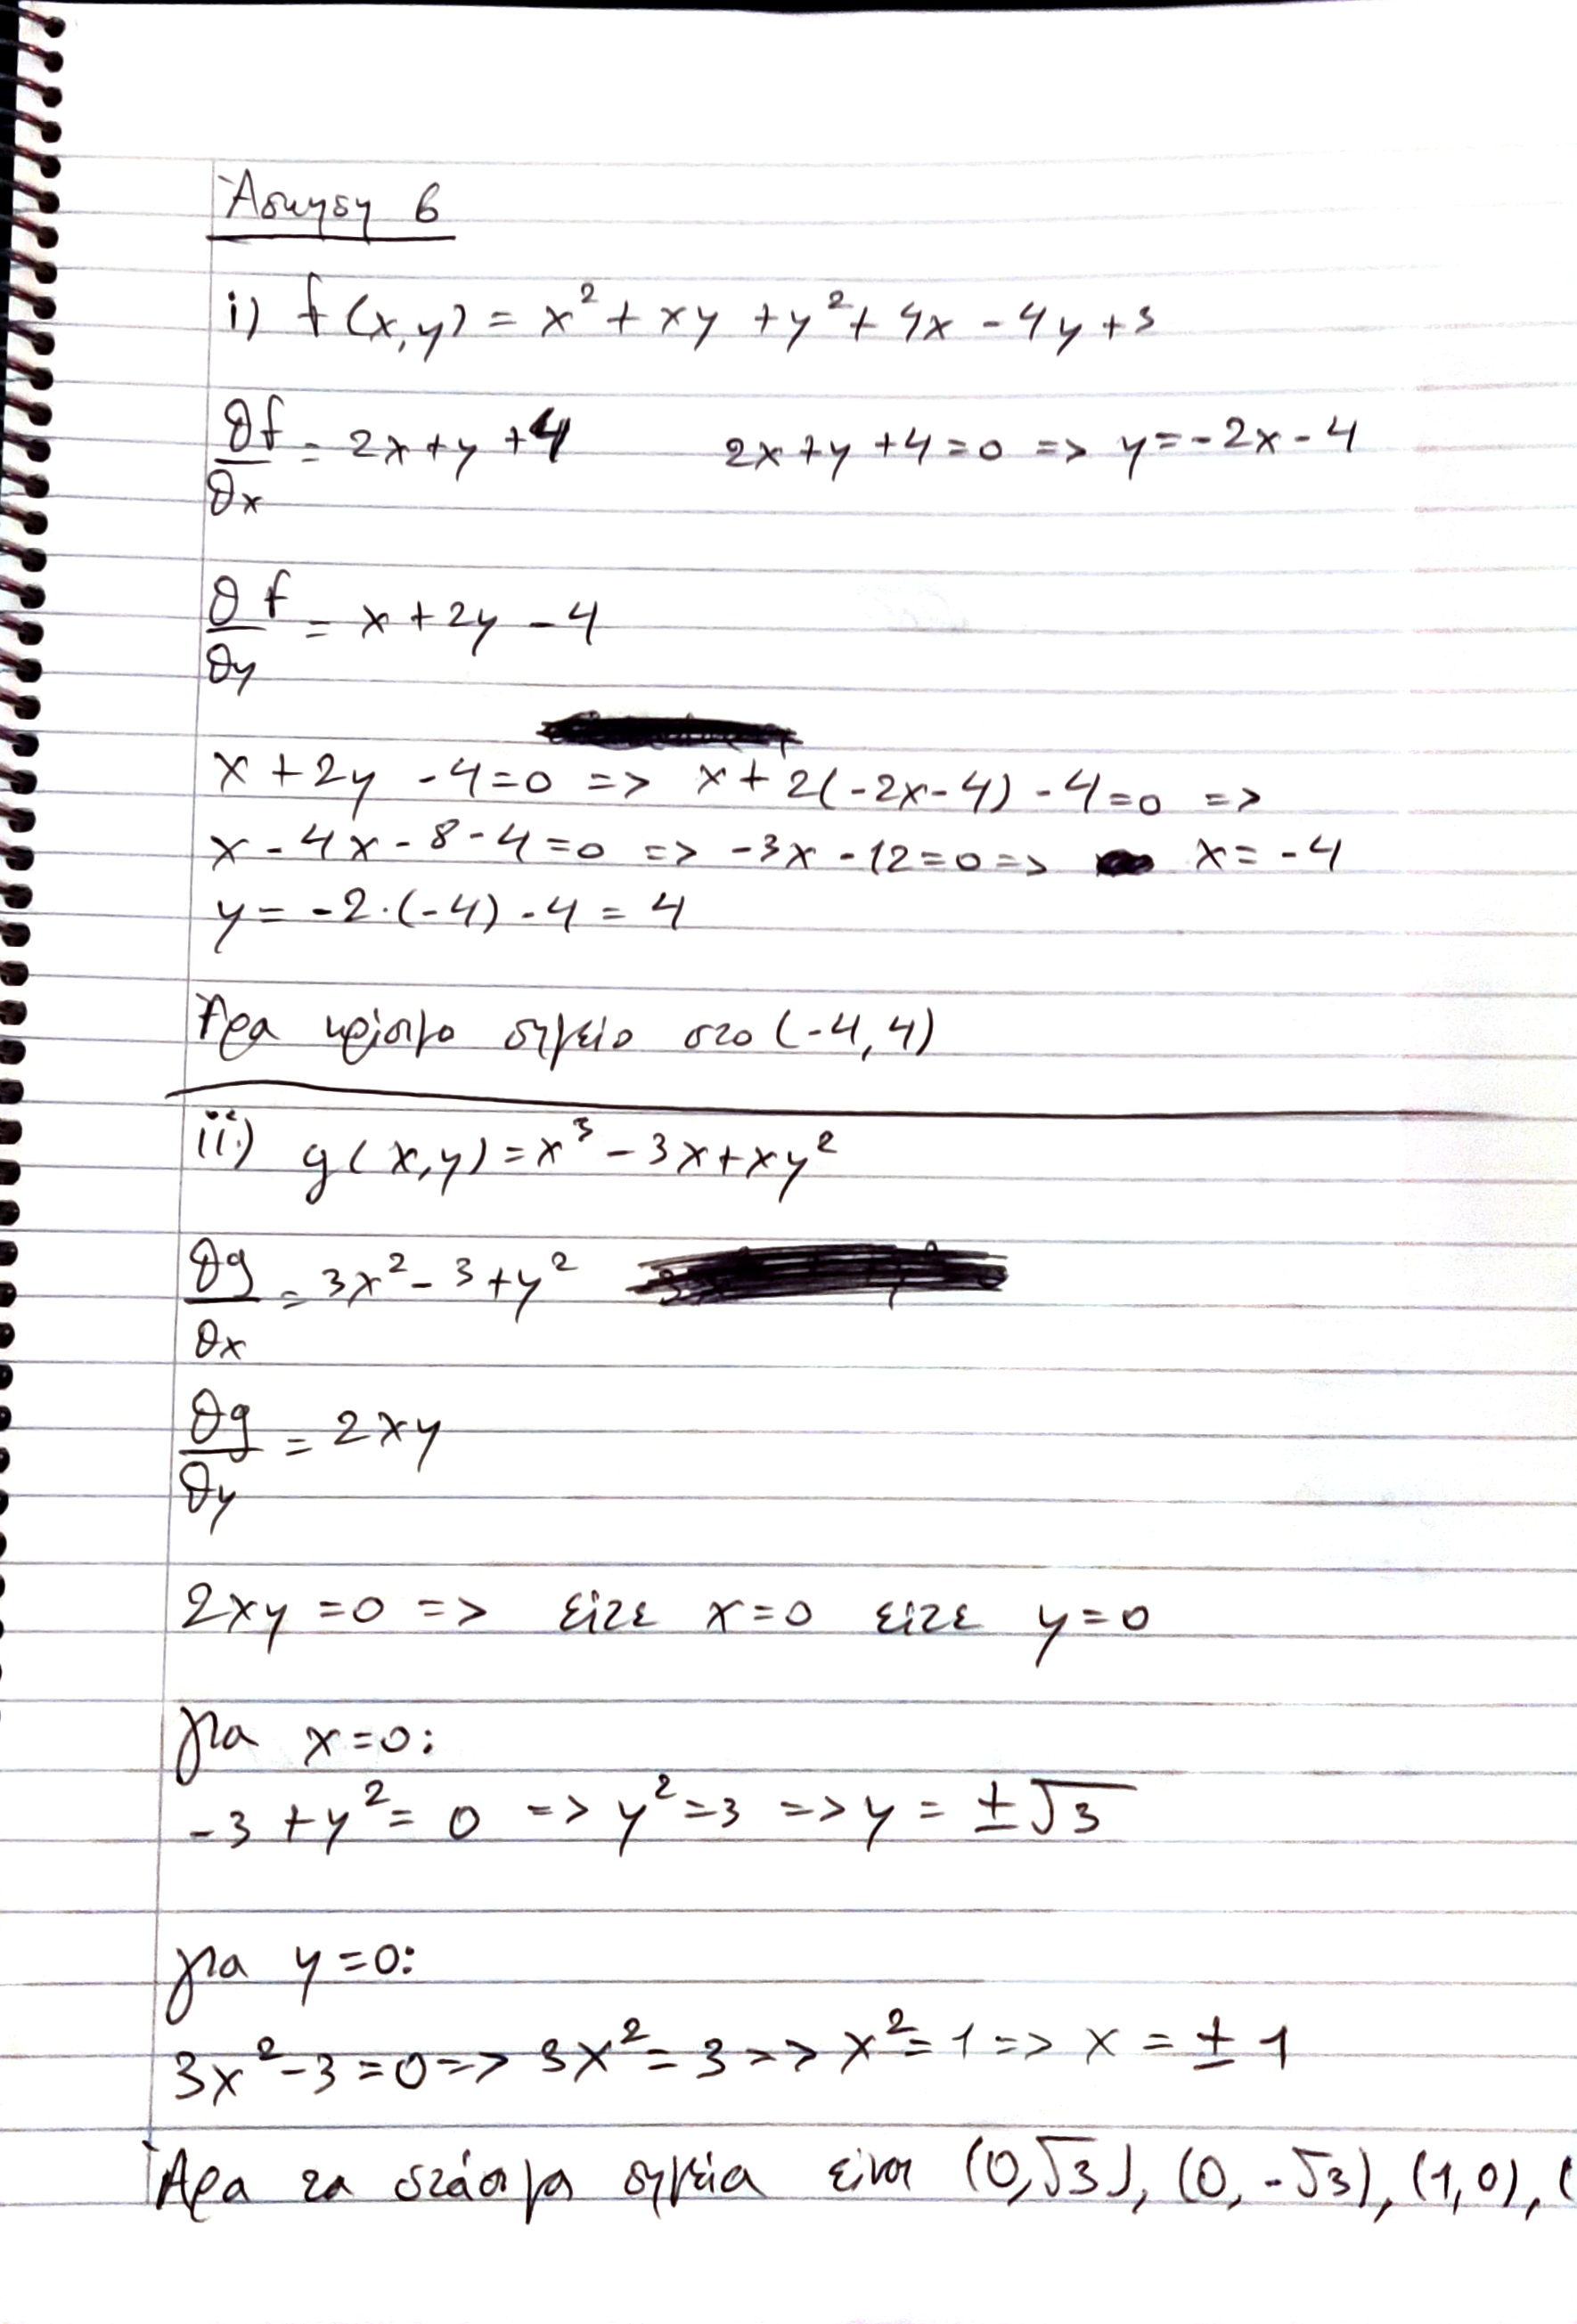 Άσκηση 6
i) f(x,y) = x² + xy + y² + 4x - 4y + 3
∂f/∂x = 2x + y + 4    2x + y + 4 = 0 => y = -2x - 4
∂f/∂y = x + 2y - 4
x + 2y - 4 = 0 => x + 2(-2x - 4) - 4 = 0 =>
x - 4x - 8 - 4 = 0 => -3x - 12 = 0 => x = -4
y = -2·(-4) - 4 = 4
Άρα κρίσιμο σημείο στο (-4, 4)
ii) g(x,y) = x³ - 3x + xy²
∂g/∂x = 3x² - 3 + y²
∂g/∂y = 2xy
2xy = 0 => είτε x = 0 είτε y = 0
για x = 0:
-3 + y² = 0 => y² = 3 => y = ±√3
για y = 0:
3x² - 3 = 0 => 3x² = 3 => x² = 1 => x = ± 1
Άρα τα στάσιμα σημεία είναι (0,√3), (0, -√3), (1,0), (